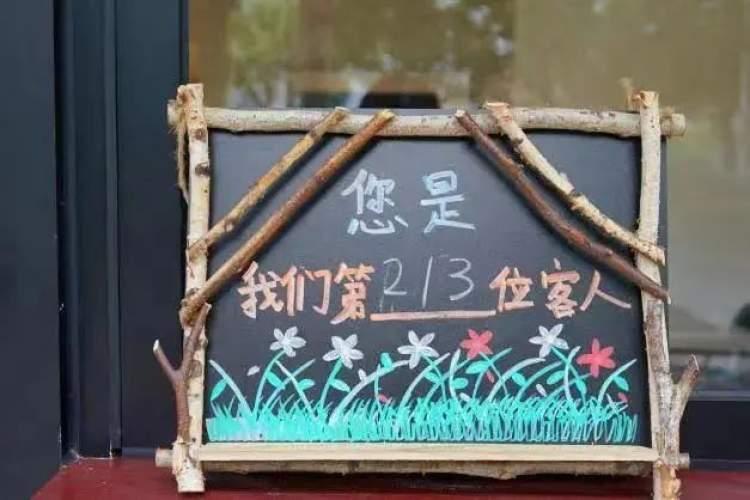 您是
我们第213位客人